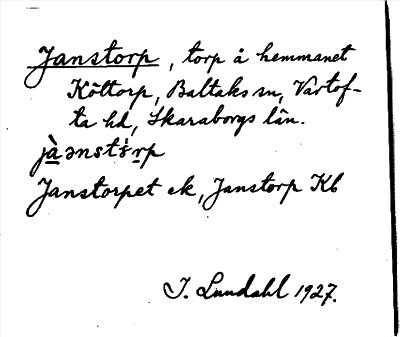 Janstorp, torp å hemmanet
Köttorp, Baltaks sn, Vartof-
ta hd, Skaraborgs län.
jàənstɜ̀rp
Janstorpet ek, Janstorp Kb
I. Lundahl 1927.